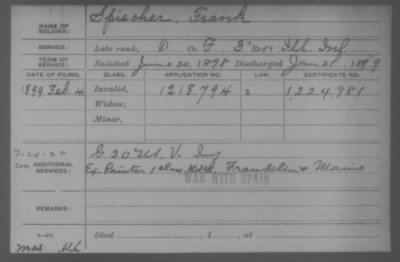 NAME OF SOLDIER: Spiecher, Frank
SERVICE: Late rank, P Co. F 3" Reg't Ill. Inf
TERM OF SERVICE: Enlisted June 20, 1898 Discharged Jan 21, 1899
DATE OF FILING. CLASS. APPLICATION NO. LAW. CERTIFICATE NO.
1899 Feb 4 Invalid, 1218,794 2 1,224,981
Widow,
Minor,
7-24-22 G 30 U.S. V. Inf
ADDITIONAL SERVICES: Painter Franklin & Maine
WAR WITH SPAIN
REMARKS:
Died , 1 , at